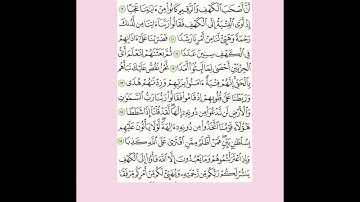 أَنَّ أَصْحَٰبَ ٱلْكَهْفِ وَٱلرَّقِيمِ كَانُوا۟ مِنْ ءَايَٰتِنَا عَجَبًا ٩
إِذْ أَوَى ٱلْفِتْيَةُ إِلَى ٱلْكَهْفِ فَقَالُوا۟ رَبَّنَآ ءَاتِنَا مِن لَّدُنكَ
رَحْمَةً وَهَيِّئْ لَنَا مِنْ أَمْرِنَا رَشَدًا ١٠ فَضَرَبْنَا عَلَىٰٓ ءَاذَانِهِمْ
فِى ٱلْكَهْفِ سِنِينَ عَدَدًا ١١ ثُمَّ بَعَثْنَٰهُمْ لِنَعْلَمَ أَىُّ
ٱلْحِزْبَيْنِ أَحْصَىٰ لِمَا لَبِثُوٓا۟ أَمَدًا ١٢ نَّحْنُ نَقُصُّ عَلَيْكَ نَبَأَهُم
بِٱلْحَقِّ إِنَّهُمْ فِتْيَةٌ ءَامَنُوا۟ بِرَبِّهِمْ وَزِدْنَٰهُمْ هُدًى ١٣
وَرَبَطْنَا عَلَىٰ قُلُوبِهِمْ إِذْ قَامُوا۟ فَقَالُوا۟ رَبُّنَا رَبُّ ٱلسَّمَٰوَٰتِ
وَٱلْأَرْضِ لَن نَّدْعُوَا۟ مِن دُونِهِۦٓ إِلَٰهًا لَّقَدْ قُلْنَآ إِذًا شَطَطًا ١٤
هَٰٓؤُلَآءِ قَوْمُنَا ٱتَّخَذُوا۟ مِن دُونِهِۦٓ ءَالِهَةً لَّوْلَا يَأْتُونَ عَلَيْهِم
بِسُلْطَٰنٍۭ بَيِّنٍ فَمَنْ أَظْلَمُ مِمَّنِ ٱفْتَرَىٰ عَلَى ٱللَّهِ كَذِبًا ١٥
وَإِذِ ٱعْتَزَلْتُمُوهُمْ وَمَا يَعْبُدُونَ إِلَّا ٱللَّهَ فَأْوُۥٓا۟ إِلَى ٱلْكَهْفِ
يَنشُرْ لَكُمْ رَبُّكُم مِّن رَّحْمَتِهِۦ وَيُهَيِّئْ لَكُم مِّنْ أَمْرِكُم مِّرْفَقًا